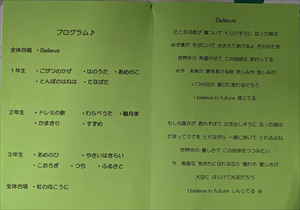 プログラム♪
全体合唱 ・Believe
1年生 ・こがつのかぜ ・はのうた ・あめのこ
・とんぼのはねは ・たなばた
2年生 ・ドレミの歌 ・わらべうた ・朧月夜
・かまきり ・すずめ
3年生 ・あめのひ ・やさいはきらい
・こおろぎ ・つち ・ふるさと
全体合唱 ・虹の向こうに
Believe
たとえば君が 傷ついて くじけそうに なった時は
必ず僕が そばにいて ささえてあげるよ そのかたを
世界中の 希望のせて この地球は まわってる
※今 未来の 扉を開ける時 悲しみや 苦しみが
いつの日か 喜びに 変わるだろう
I believe in future 信じてる
もしも誰かが 君のそばで 泣き出しそうに なった時は
だまってうでを とりながら 一緒に歩いて くれるよね
世界中の 優しさで この地球を つつみたい
今 素直な 気持ちになれるなら 憧れや 愛しさが
大空に はじけて光るだろう
I believe in future しんじてる ※